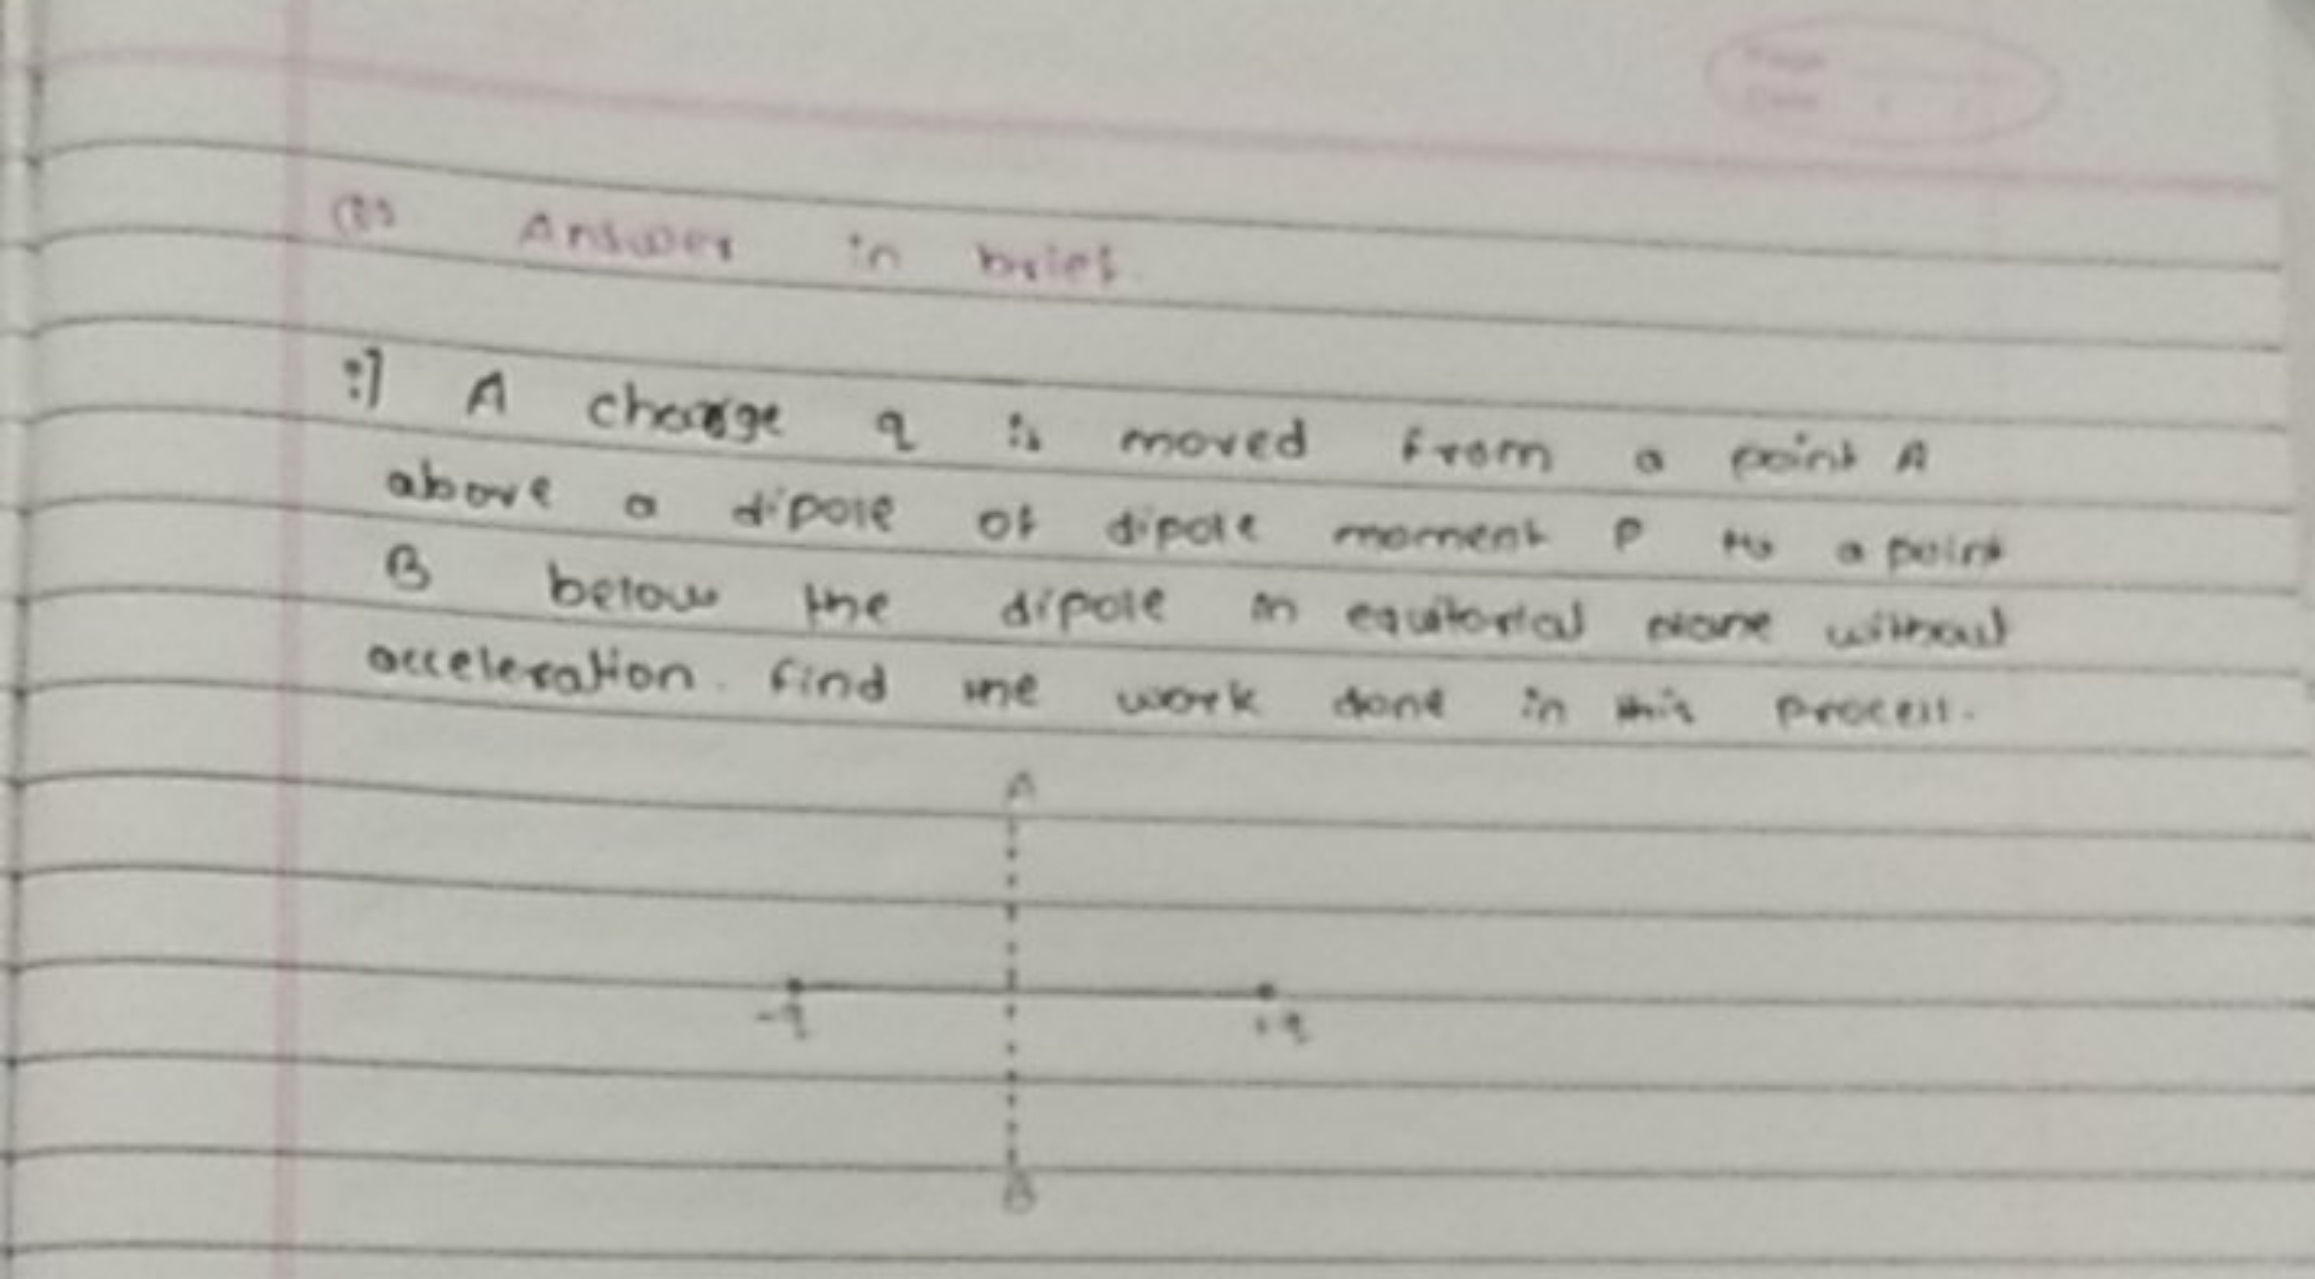 Answer in brief.
i] A charge q is moved from a point A
above a dipole of dipole moment P to a point
B below the dipole in equitorial plane without
acceleration. find the work done in this process.
A
-q +q
B